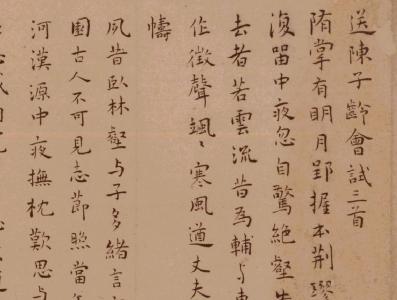 送陳子齡會試三首
隋掌有明月郢握本荆璆
復留中夜忽自驚絶壑生
去者若雲流昔為輔与車
作徵聲颯〻寒風遒丈夫
幬
夙昔卧林壑与子多緒言
園古人不可見志節照當
河漢源中夜撫枕歎思与